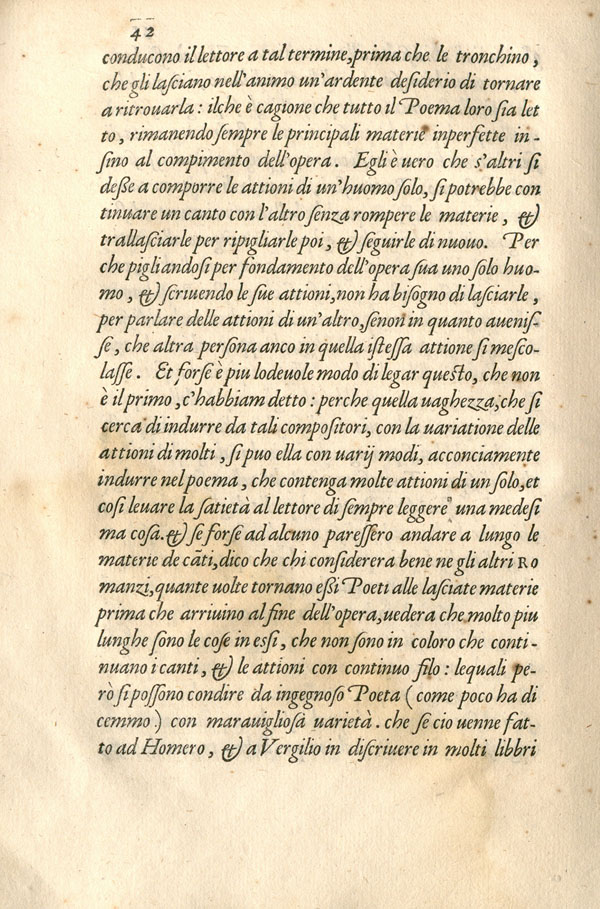 42
conducono il lettore a tal termine, prima che le tronchino,
che gli lasciano nell'animo un'ardente desiderio di tornare
a ritrouarla: ilche è cagione che tutto il Poema loro sia let
to, rimanendo sempre le principali materie inperfette in-
sino al compimento dell'opera. Egli è uero che s'altri si
desse a comporre le attioni di un'huomo solo, si potrebbe con
tinuare un canto con l'altro senza rompere le materie, &
trallasciarle per ripigliarle poi, & seguirle di nuouo. Per
che pigliandosi per fondamento dell'opera sua uno solo huo-
mo, & scriuendo le sue attioni, non ha bisogno di lasciarle,
per parlare delle attioni di un'altro, senon in quanto auenis-
se, che altra persona anco in quella istessa attione si mesco-
lasse. Et forse è piu lodeuole modo di legar questo, che non
è il primo, c'habbiam detto: perche quella uaghezza, che si
cerca di indurre da tali compositori, con la uariatione delle
attioni di molti, si puo ella con uarij modi, acconciamente
indurre nel poema, che contenga molte attioni di un solo, et
cosi leuare la satietà al lettore di sempre leggere una medesi
ma cosa. & se forse ad alcuno paressero andare a lungo le
materie de cāti, dico che chi considerera bene ne gli altri RO
manzi, quante uolte tornano essi Poeti alle lasciate materie
prima che arriuino al fine dell'opera, uedera che molto piu
lunghe sono le cose in essi, che non sono in coloro che conti-
nuano i canti, & le attioni con continuo filo: lequali pe-
rò si possono condire da ingegnoso Poeta (come poco ha di
cemmo) con marauigliosa uarietà. che se cio uenne fat-
to ad Homero, & a Vergilio in discriuere in molti libbri